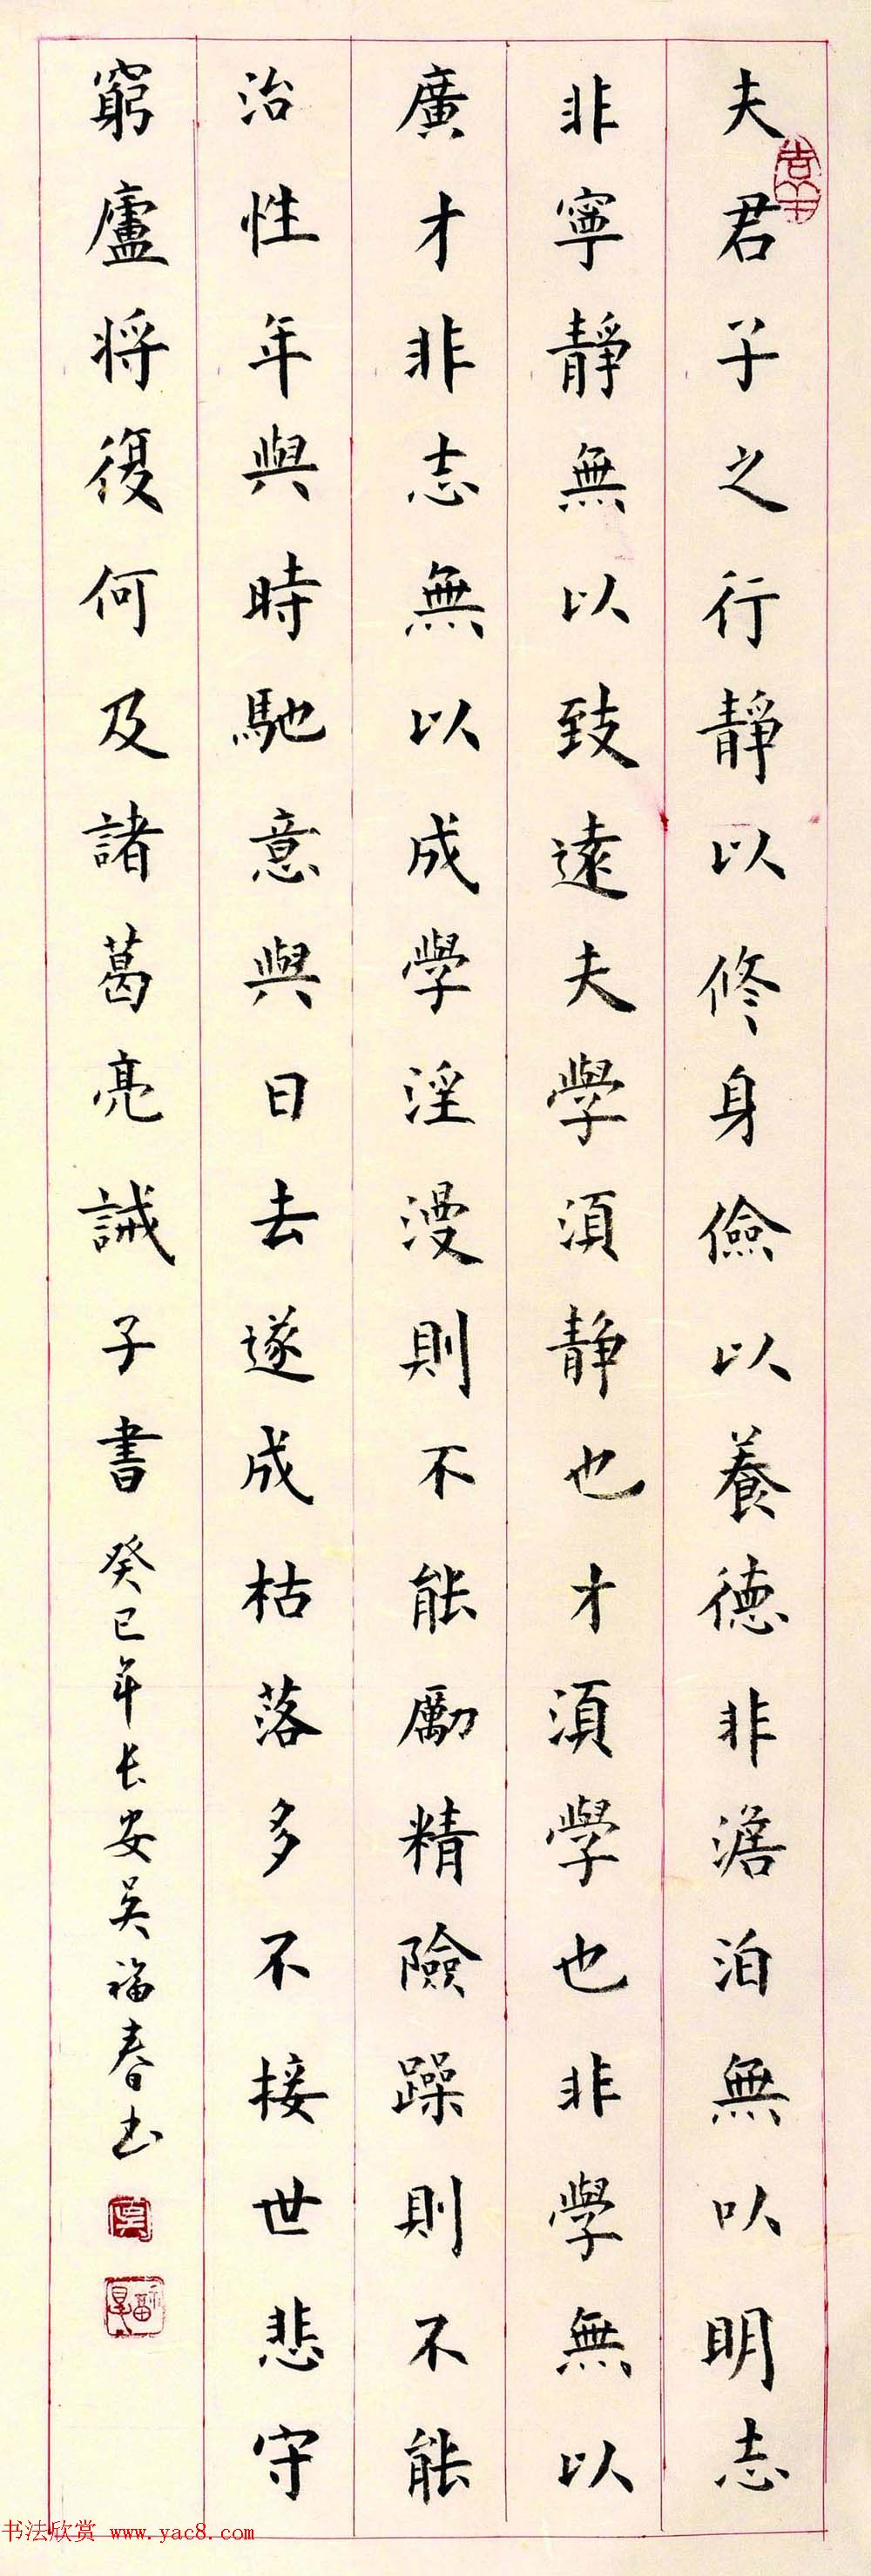 夫君子之行靜以修身儉以養德非澹泊無以明志
非寧靜無以致遠夫學須静也才須學也非學無以
廣才非志無以成學淫漫則不能勵精險躁則不能
治性年與時馳意與日去遂成枯落多不接世悲守
窮廬将復何及諸葛亮誡子書癸巳年长安吴福春书
书法欣赏 www.yac8.com